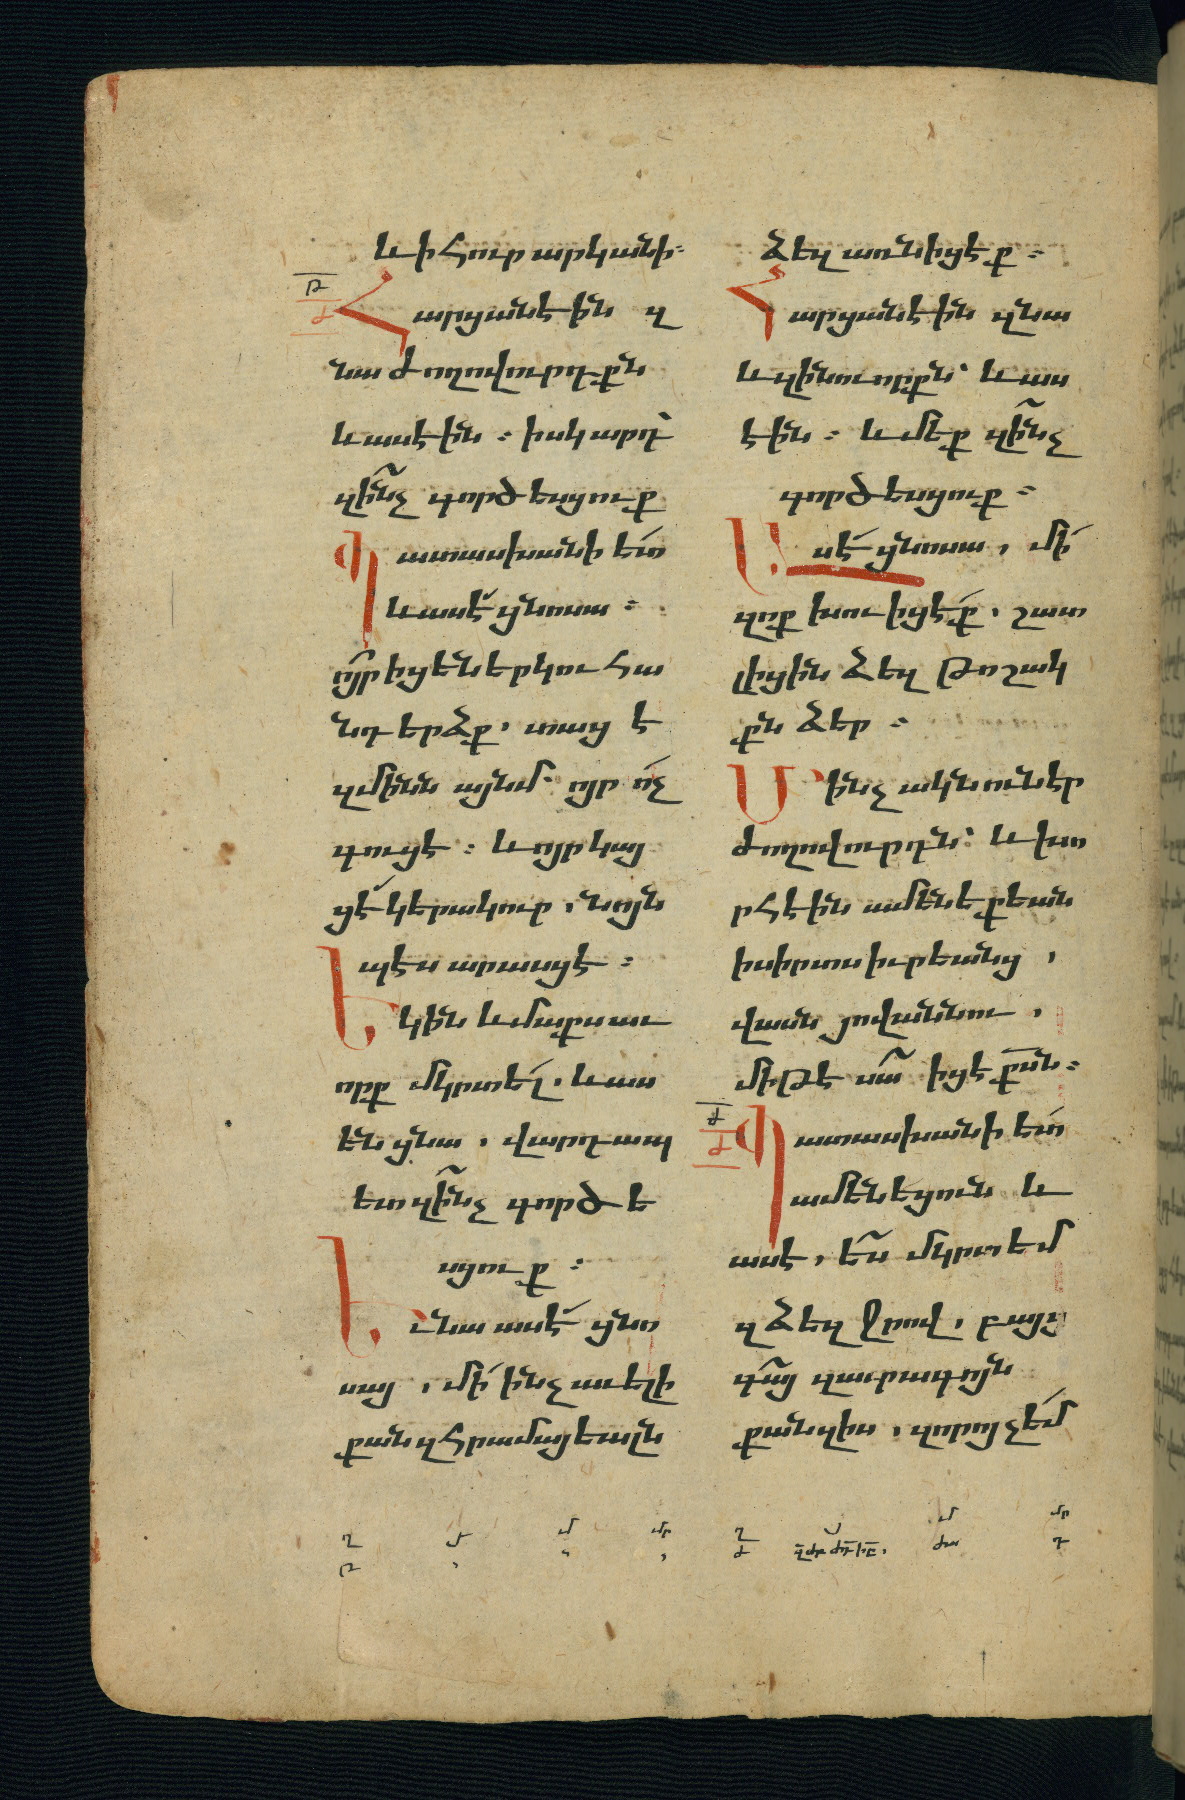 և ի հուր արկանի։
Հարցանէին զ
նա ժողովուրդքն
և ասէին։ իսկ արդ՝
զի՞նչ գործեսցուք
Պատասխանի ետ
և ասէ ցնոսա։
ոյր իցեն երկու հա
նդերձք, տացէ
զմինն այնմ՝ ոյր ոչ
գուցէ։ և ոյր կայ
ցէ կերակուր, նոյն
պէս արասցէ։
Եկին և մաքսաւ
որք մկրտել, և աս
են ցնա, վարդապ
ետ զի՞նչ գործե
սցուք։
Եւ նա ասէ ցնո
սայ, մի ինչ աւելի
քան զհրամայեալն
ձեզ առնիցէք։
Հարցանէին ցնա
և զինուորքն՝ և աս
էին։ և մեք զի՞նչ
գործեսցուք։
Ասէ ցնոսա, մի
զոք խուիցէք, շատ
լիցին ձեզ թոշակ
քն ձեր։
Մինչ ակն ունէր
ժողովուրդն՝ և խո
րհէին ամենեքեան
ի սիրտս իւրեանց,
վասն յովաննու,
մի թէ սա՞ իցէ քսն։
Պատասխանի ետ
ամենեցուն և
ասէ, ես մկրտեմ
զձեզ ջրով, բայց
գայ զաւրագոյն
քան զիս, զորոյ չեմ